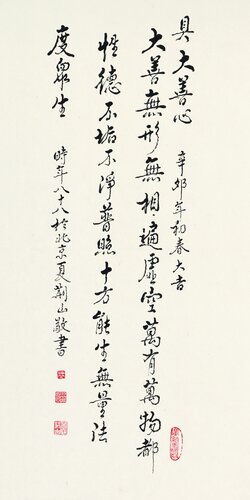 具大善心
辛卯年初春大吉
大善無形無相遍虛空萬有萬物都
性德不垢不淨普照十方能生無量法
度眾生
時年八十八於北京夏荊山敬書